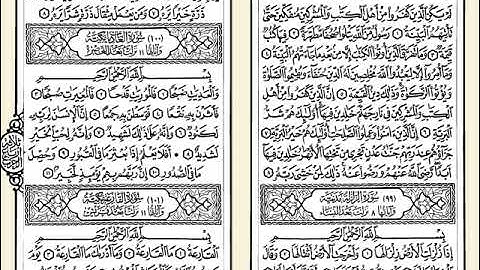 لَمْ يَكُنِ الَّذِينَ كَفَرُوا مِنْ أَهْلِ الْكِتَٰبِ وَالْمُشْرِكِينَ مُنفَكِّينَ حَتَّىٰ
تَأْتِيَهُمُ الْبَيِّنَةُ ۝١ رَسُولٌ مِّنَ اللَّهِ يَتْلُوا صُحُفًا مُّطَهَّرَةً ۝٢ فِيهَا كُتُبٌ
قَيِّمَةٌ ۝٣ وَمَا تَفَرَّقَ الَّذِينَ أُوتُوا الْكِتَٰبَ إِلَّا مِنْ بَعْدِ مَا جَاءَتْهُمُ الْبَيِّنَةُ ۝٤
وَمَا أُمِرُوا إِلَّا لِيَعْبُدُوا اللَّهَ مُخْلِصِينَ لَهُ الدِّينَ حُنَفَاءَ وَيُقِيمُوا الصَّلَوٰةَ
وَيُؤْتُوا الزَّكَوٰةَ وَذَٰلِكَ دِينُ الْقَيِّمَةِ ۝٥ إِنَّ الَّذِينَ كَفَرُوا مِنْ أَهْلِ
الْكِتَٰبِ وَالْمُشْرِكِينَ فِي نَارِ جَهَنَّمَ خَٰلِدِينَ فِيهَا أُولَٰئِكَ هُمْ شَرُّ
الْبَرِيَّةِ ۝٦ إِنَّ الَّذِينَ ءَامَنُوا وَعَمِلُوا الصَّٰلِحَٰتِ أُولَٰئِكَ هُمْ خَيْرُ الْبَرِيَّةِ ۝٧
جَزَاؤُهُمْ عِندَ رَبِّهِمْ جَنَّٰتُ عَدْنٍ تَجْرِي مِن تَحْتِهَا الْأَنْهَٰرُ خَٰلِدِينَ فِيهَا
أَبَدًا رَّضِيَ اللَّهُ عَنْهُمْ وَرَضُوا عَنْهُ ذَٰلِكَ لِمَنْ خَشِيَ رَبَّهُ ۝٨
(٩٩) سُورَةُ الزَّلْزَلَةِ مَدَنِيَّة
وَآيَاتُهَا ٨ نَزَلَتْ بَعْدَ النِّسَاء
بِسْمِ اللَّهِ الرَّحْمَٰنِ الرَّحِيمِ
إِذَا زُلْزِلَتِ الْأَرْضُ زِلْزَالَهَا ۝١ وَأَخْرَجَتِ الْأَرْضُ أَثْقَالَهَا ۝٢ وَقَالَ
ذَرَّةٍ خَيْرًا يَرَهُ ۝٧ وَمَن يَعْمَلْ مِثْقَالَ ذَرَّةٍ شَرًّا يَرَهُ ۝٨
(١٠٠) سُورَةُ الْعَادِيَاتِ مَكِّيَّة
وَآيَاتُهَا ١١ نَزَلَتْ بَعْدَ الْعَصْرِ
بِسْمِ اللَّهِ الرَّحْمَٰنِ الرَّحِيمِ
وَالْعَٰدِيَٰتِ ضَبْحًا ۝١ فَالْمُورِيَٰتِ قَدْحًا ۝٢ فَالْمُغِيرَٰتِ صُبْحًا ۝٣
فَأَثَرْنَ بِهِ نَقْعًا ۝٤ فَوَسَطْنَ بِهِ جَمْعًا ۝٥ إِنَّ الْإِنسَٰنَ لِرَبِّهِ
لَكَنُودٌ ۝٦ وَإِنَّهُ عَلَىٰ ذَٰلِكَ لَشَهِيدٌ ۝٧ وَإِنَّهُ لِحُبِّ الْخَيْرِ
لَشَدِيدٌ ۝٨ أَفَلَا يَعْلَمُ إِذَا بُعْثِرَ مَا فِي الْقُبُورِ ۝٩ وَحُصِّلَ
مَا فِي الصُّدُورِ ۝١٠ إِنَّ رَبَّهُم بِهِمْ يَوْمَئِذٍ لَّخَبِيرٌ ۝١١
(١٠١) سُورَةُ الْقَارِعَةِ مَكِّيَّة
وَآيَاتُهَا ١١ نَزَلَتْ بَعْدَ قُرَيْش
بِسْمِ اللَّهِ الرَّحْمَٰنِ الرَّحِيمِ
الْقَارِعَةُ ۝١ مَا الْقَارِعَةُ ۝٢ وَمَا أَدْرَىٰكَ مَا الْقَارِعَةُ ۝٣ يَوْمَ